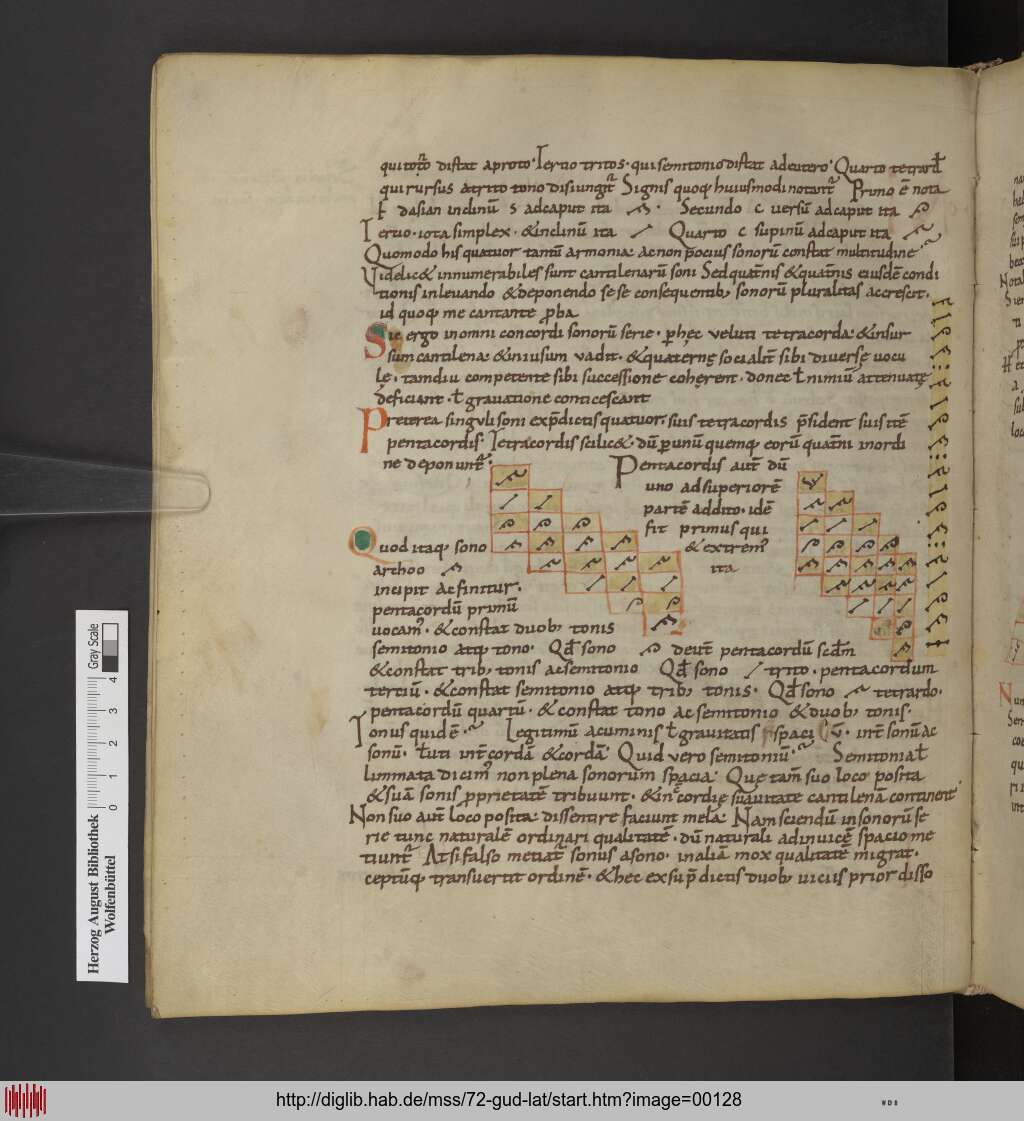 qui toto distat a proto· Tertio tritos· qui semitonio distat a deutero· Quarto tetrard
qui rursus a trito tono disiungit Signis quoq; huiusmodi notant Primo ē nota
dasian inclinū s ad caput ita · Secundo c uersū ad caput ita
Tertio· iota simplex· & inclinū ita Quarto c supinū ad caput ita
Quomodo his quatuor tantū armonia ac non potius sonorū constat multitudine
Videlic& innumerabiles sunt cantilenarū soni Sed quatnis & quatnis eiusdē condi
tionis in leuando & deponendo se se consequentib; sonorū pluralitas accrescit·
id quoq; me cantante pba
Sic ergo in omni concordi sonorū serie· p hęc veluti tetracorda & in sur
sum cantilena & in iusum vadit· & quaternę socialit sibi diuersę uocu
lę· tamdiu competente sibi successione cohęrent· donec ł nimiū attenuatę
deficiant· ł grauatione conticescant
Preterea singuli soni exp̄dictis quatuor· suis tetracordis p̄sident suis itē
pentacordis· Tetracordis scilic&· dū p unū quemq; eorū quatni in ordi
ne deponunt·
Pentacordis aut dū
uno ad superiorē
partē addito· idē
fit primus qui
& extrem'
ita
Quod itaq; sono
archoo
incipit ac finitur·
pentacordū primū
uocam'· & constat duob; tonis
semitonio atq; tono· Qđ sono deut pentacordū scdm
& constat trib; tonis ac semitonio Qđ sono trito· pentacordum
tertiū· & constat semitonio atq; trib; tonis· Qđ sono tetrardo·
pentacordū quartū· & constat tono ac semitonio & duob; tonis·
Tonus quid ē· Legitimū acuminis ł grauitatis spaciū· int sonū ac
sonū· ł uti int cordā & cordā Quid vero semitoniū· Semitonia ł
limmata dicim' non plena sonorum spacia Quę tam suo loco posita
& suā sonis pprietatē tribuunt· & in cordię suauitate cantilenā continent
Non suo aut loco posita dissentire faciunt mela Nam sciendū in sonorū se
rie tunc naturalē ordinari qualitatē· dū naturali ad inuicē spacio me
tiunt At si falso metiat sonus a sono· in aliā mox qualitatē migrat·
ceptūq; transuertit ordinē· & hec ex sup̄dictis duob; uiciis prior disso
Herzog August Bibliothek
Wolfenbüttel
Gray Scale
0 1 2 3 4
http://diglib.hab.de/mss/72-gud-lat/start.htm?image=00128